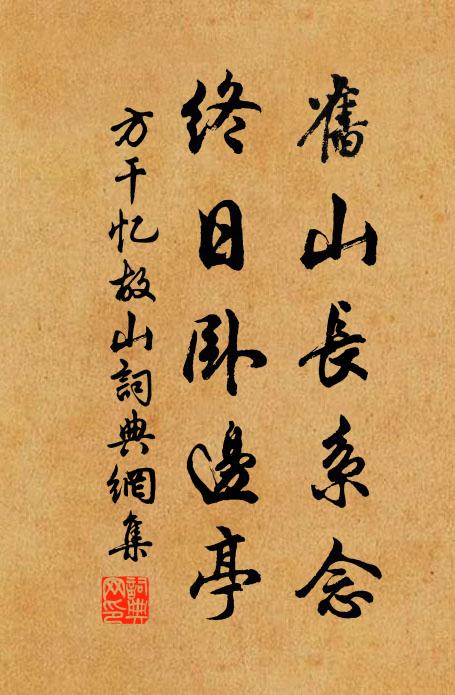 舊山長系念
終日卧邊亭
方干忆故山詞典網集
詞典網印